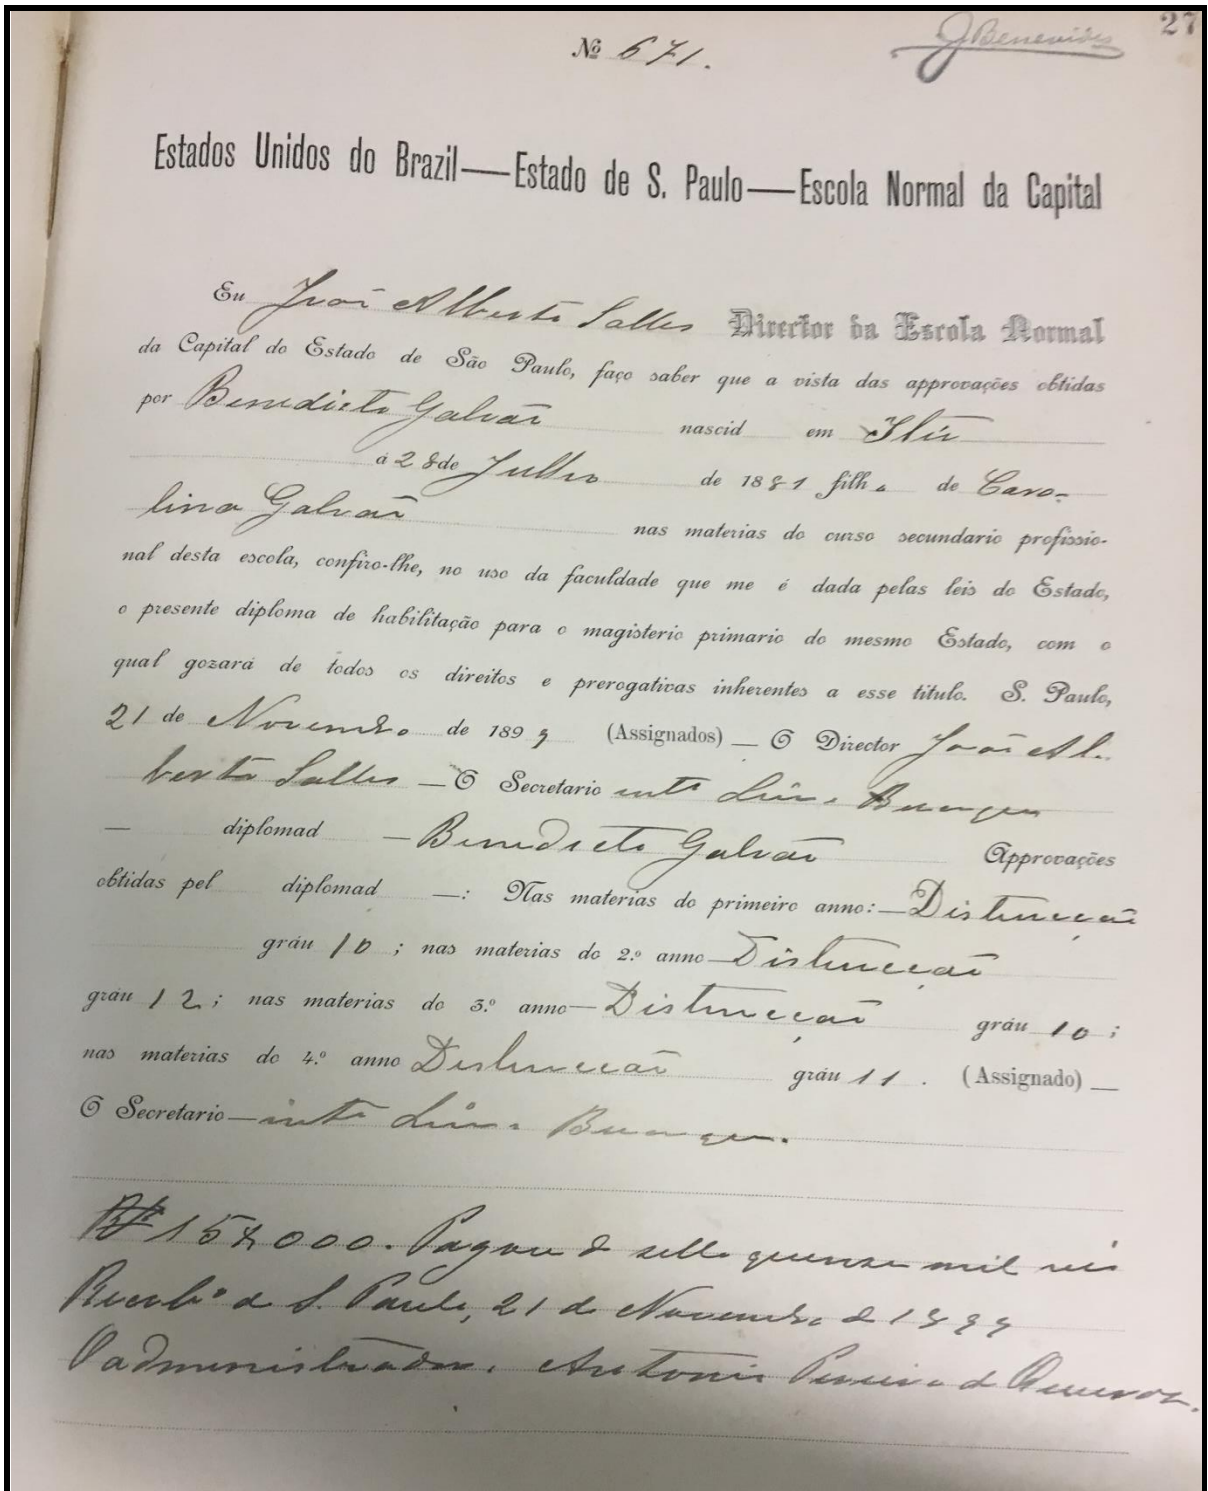 27
Nº 671.
J Benevides
Estados Unidos do Brazil—Estado de S. Paulo—Escola Normal da Capital
Eu João Alberto Salles Director da Escola Normal
da Capital do Estado de São Paulo, faço saber que a vista das approvações obtidas
por Benedicto Galvão nascid em Itú
a 28 de Julho de 1881 filho de Caro-
lina Galvão nas materias do curso secundario professio-
nal desta escola, confiro-lhe, no uso da faculdade que me é dada pelas leis do Estado,
o presente diploma de habilitação para o magisterio primario do mesmo Estado, com o
qual gozará de todos os direitos e prerogativas inherentes a esse titulo. S. Paulo,
21 de Novembro de 1899 (Assignados) — O Director João Al-
berto Salles — O Secretario intº
— diplomad — Benedicto Galvão Approvações
obtidas pel diplomad —: Nas materias do primeiro anno:— Distincção
gráu 10; nas materias do 2.º anno— Distincção
gráu 12; nas materias do 3.º anno— Distincção gráu 10;
nas materias do 4.º anno Distincção gráu 11. (Assignado) —
O Secretario— intº
Rs 15$000. Pagou de sello quinze mil reis
Recebº de S. Paulo, 21 de Novembro de 1899
O administrador, Antonio Pereira de Queiroz.